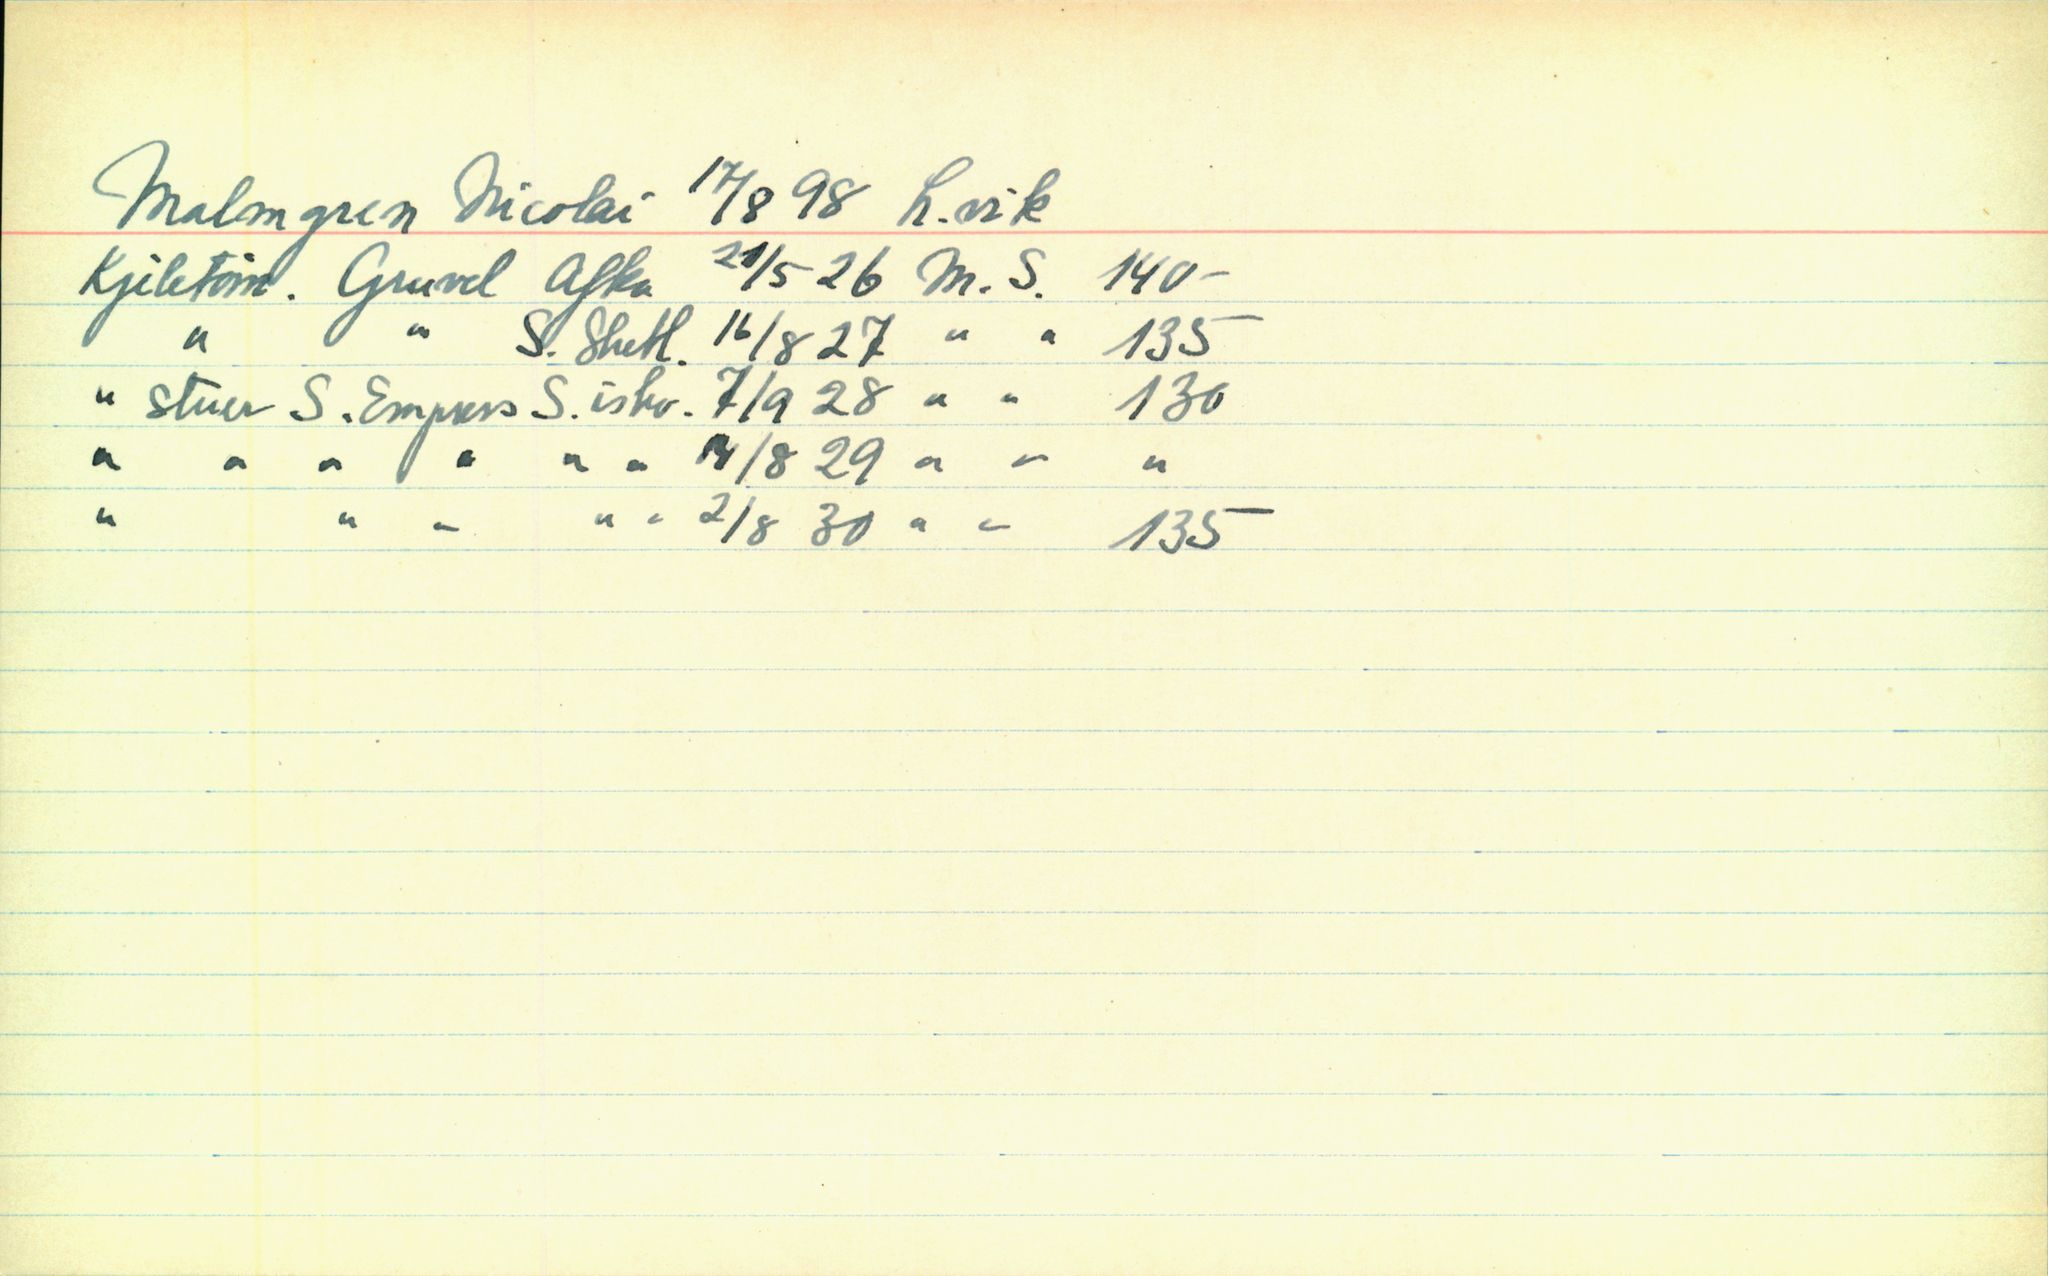 Malmgren Nicolai 17/8 98 L.vik
Kjeletöm. Gruvel Afka 21/5 26 M. S. 140-
" " S. Shetl. 16/8 27 " " 135
" stuer S. Empress S. isho. 7/9 28 " " 130
" " " " " " /8 29 " " "
" " " " " 2/8 30 " " 135